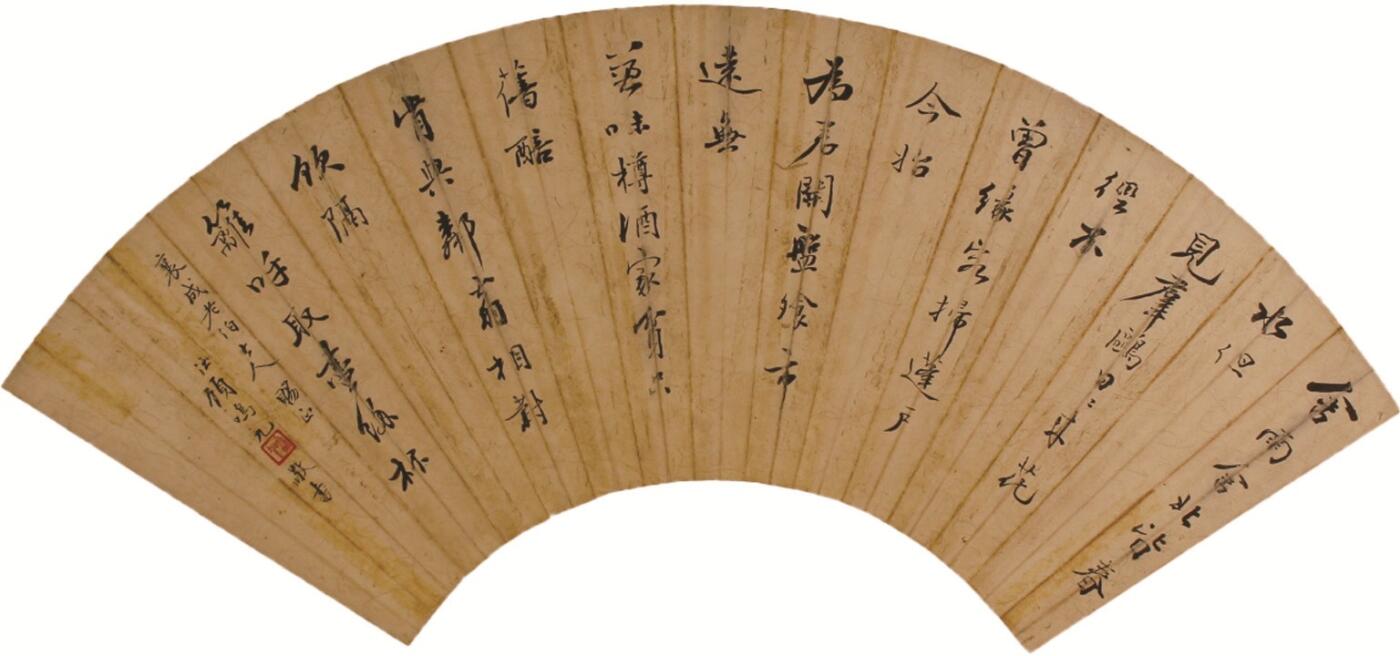 舍南舍北皆春
水但
見羣鷗日〻來花
徑不
曾緣客掃蓬戶
今始
為君開盤飧市
遠無
兼味樽酒家貧只
舊醅
肯與鄰翁相對
飲隔
籬呼取盡餘杯
襄成老伯大人賜正
鳴九敬書